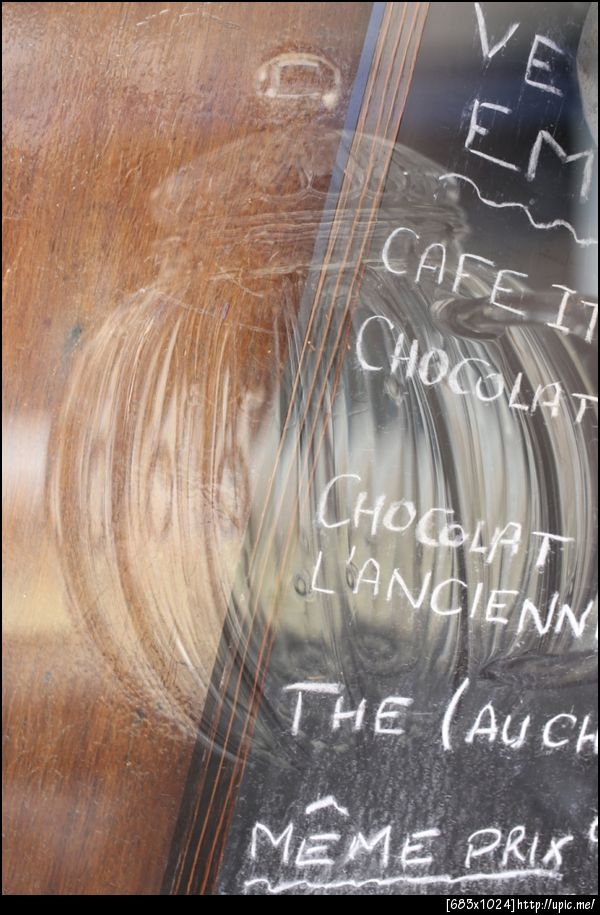 VE
EM
CAFE IT
CHOCOLAT
CHOCOLAT
L'ANCIENN
THE (AUCH
MÊME PRIX
[683x1024]http://upic.me/